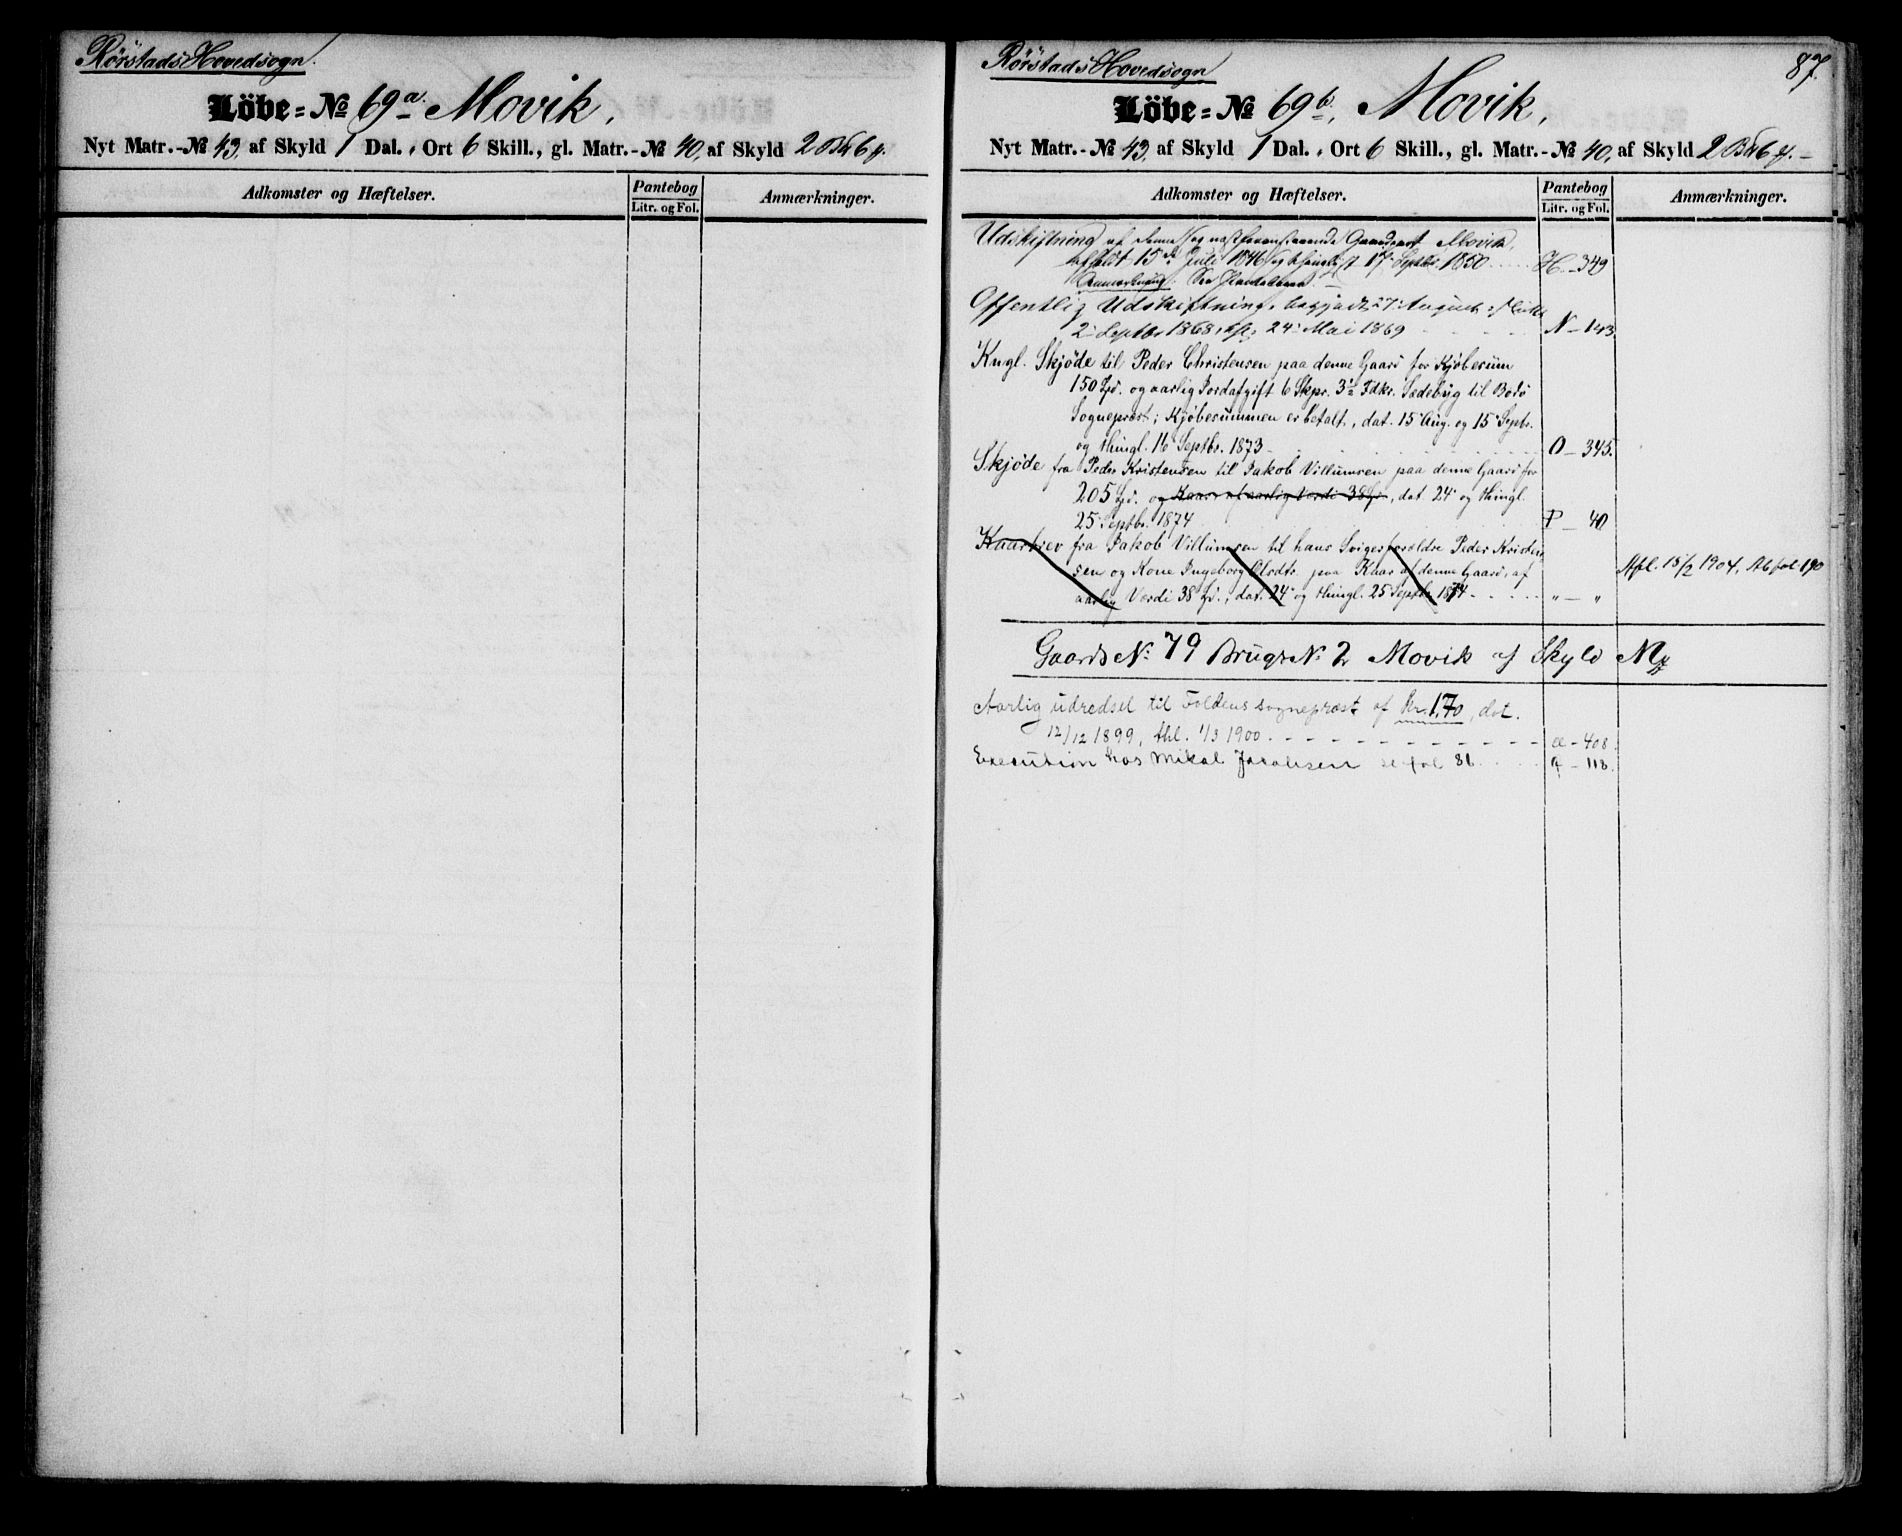 Rørstads Hovedsogn.
Löbe=No 69a Movik.
Nyt Matr.-No 43, af Skyld 1 Dal. „ Ort 6 Skill., gl. Matr.-No 40, af Skyld 2
Adkomster og Hæftelser.
Pantebog
Litr. og Fol.
Anmærkninger.
Rørstads Hovedsogn
87.
Löbe=No 69b, Movik,
Nyt Matr.-No 43, af Skyld 1 Dal. „ Ort 6 Skill., gl. Matr.-No 40, af Skyld 2
Adkomster og Hæftelser.
Pantebog
Litr. og Fol.
Anmærkninger.
Udskiftning af denne og næstforanstaaende Gaardpart Movik,
15de Juli 1846 og thinglyst 17 Septbr. 1850 H - 349
Anmærkning. See
Offentlig Udskiftning, begyndt 27 August
2 Septbr 1868, 24 Mai 1869 N - 143
Kngl. Skjøde til Peder Christensen paa denne Gaard for Kjøbesum
150 Spd. og aarlig Jordafgift 6 Skpr. 3½ Fdkr. Sædebyg til Bodø
Sognepræst; Kjøbesummen er betalt, dat. 15 Aug. og 15 Septbr.
og thingl. 16 Septbr. 1873 O - 345.
Skjøde fra Peder Kristensen til Jakob Villumsen paa denne Gaard for
205 Spd. og Kaar af aarlig Værdi 38 Spd., dat. 24 og thingl.
25 Septbr. 1874 P - 40
Kaarbrev fra Jakob Villumsen til hans Svigerforældre Peder Kristen-
sen og Kone Ingeborg Olsdtr. paa Kaar af denne Gaard, af Afl. 15/2 1904, Ab fol 190
aarlig Værdi 38 Spd., dat. 24 og thingl. 25 Septbr 1874 „ - „
Gaards No 79 Brugs No 2 Movik af Skyld Mk
Aarlig udredsel til Foldens sognepræst af Kr. 1,70, dat.
12/12 1899, thl. 1/3 1900 - 408.
Execution hos Mikal Jacobsen se fol 86 - 118.